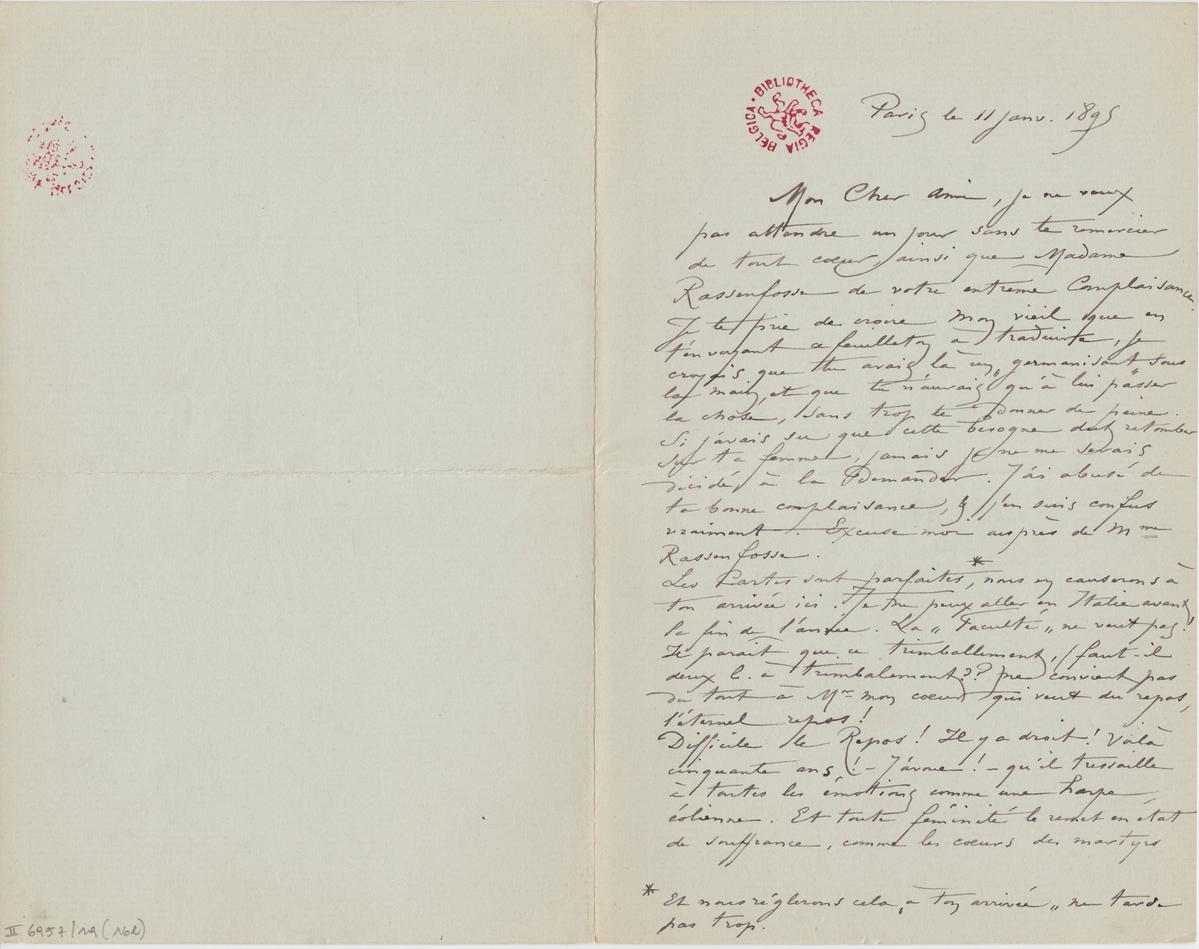 BIBLIOTHECA REGIA BELGICA
Paris le 11 janv. 1895
Mon Cher Ami, je ne veux
pas attendre un jour sans te remercier
de tout cœur, ainsi que Madame
Rassenfosse de votre extrème Complaisance.
Je te prie de croire mon vieil que en
t'envoyant ce feuilleton à traduire, je
croyais que tu avais là un „germanisant" sous
la main, et que tu n'aurais qu'à lui passer
la chose, sans trop te donner de peine.
Si j'avais su que cette besogne dut retomber
sur ta femme, jamais je ne me serais
décidé, à la Demander. J'ai abusé de
ta bonne complaisance, & j'en suis confus
vraiment. Excuse moi auprès de Mme
Rassenfosse.
Les Cartes sont parfaites,* nous en causerons à
ton arrivée ici. Je ne peux aller en Italie avant
la fin de l'année. La „Faculté„ ne veut pas!
Il parait que ce trimballement, (faut-il
deux l. à trimbalement??) ne convient pas
du tout à Mr mon cœur qui veut du repos,
l'éternel repos!
Difficile le Repos! Il y a droit! Voilà
cinquante ans! – J'avoue! – qu'il tressaille
à toutes les émotions comme une harpe
éolienne. Et toute féminité le remet en état
de souffrance, comme les cœurs des martyrs
* Et nous réglerons cela „à ton arrivée„ ne tarde
pas trop.
II 6957/19 (162)